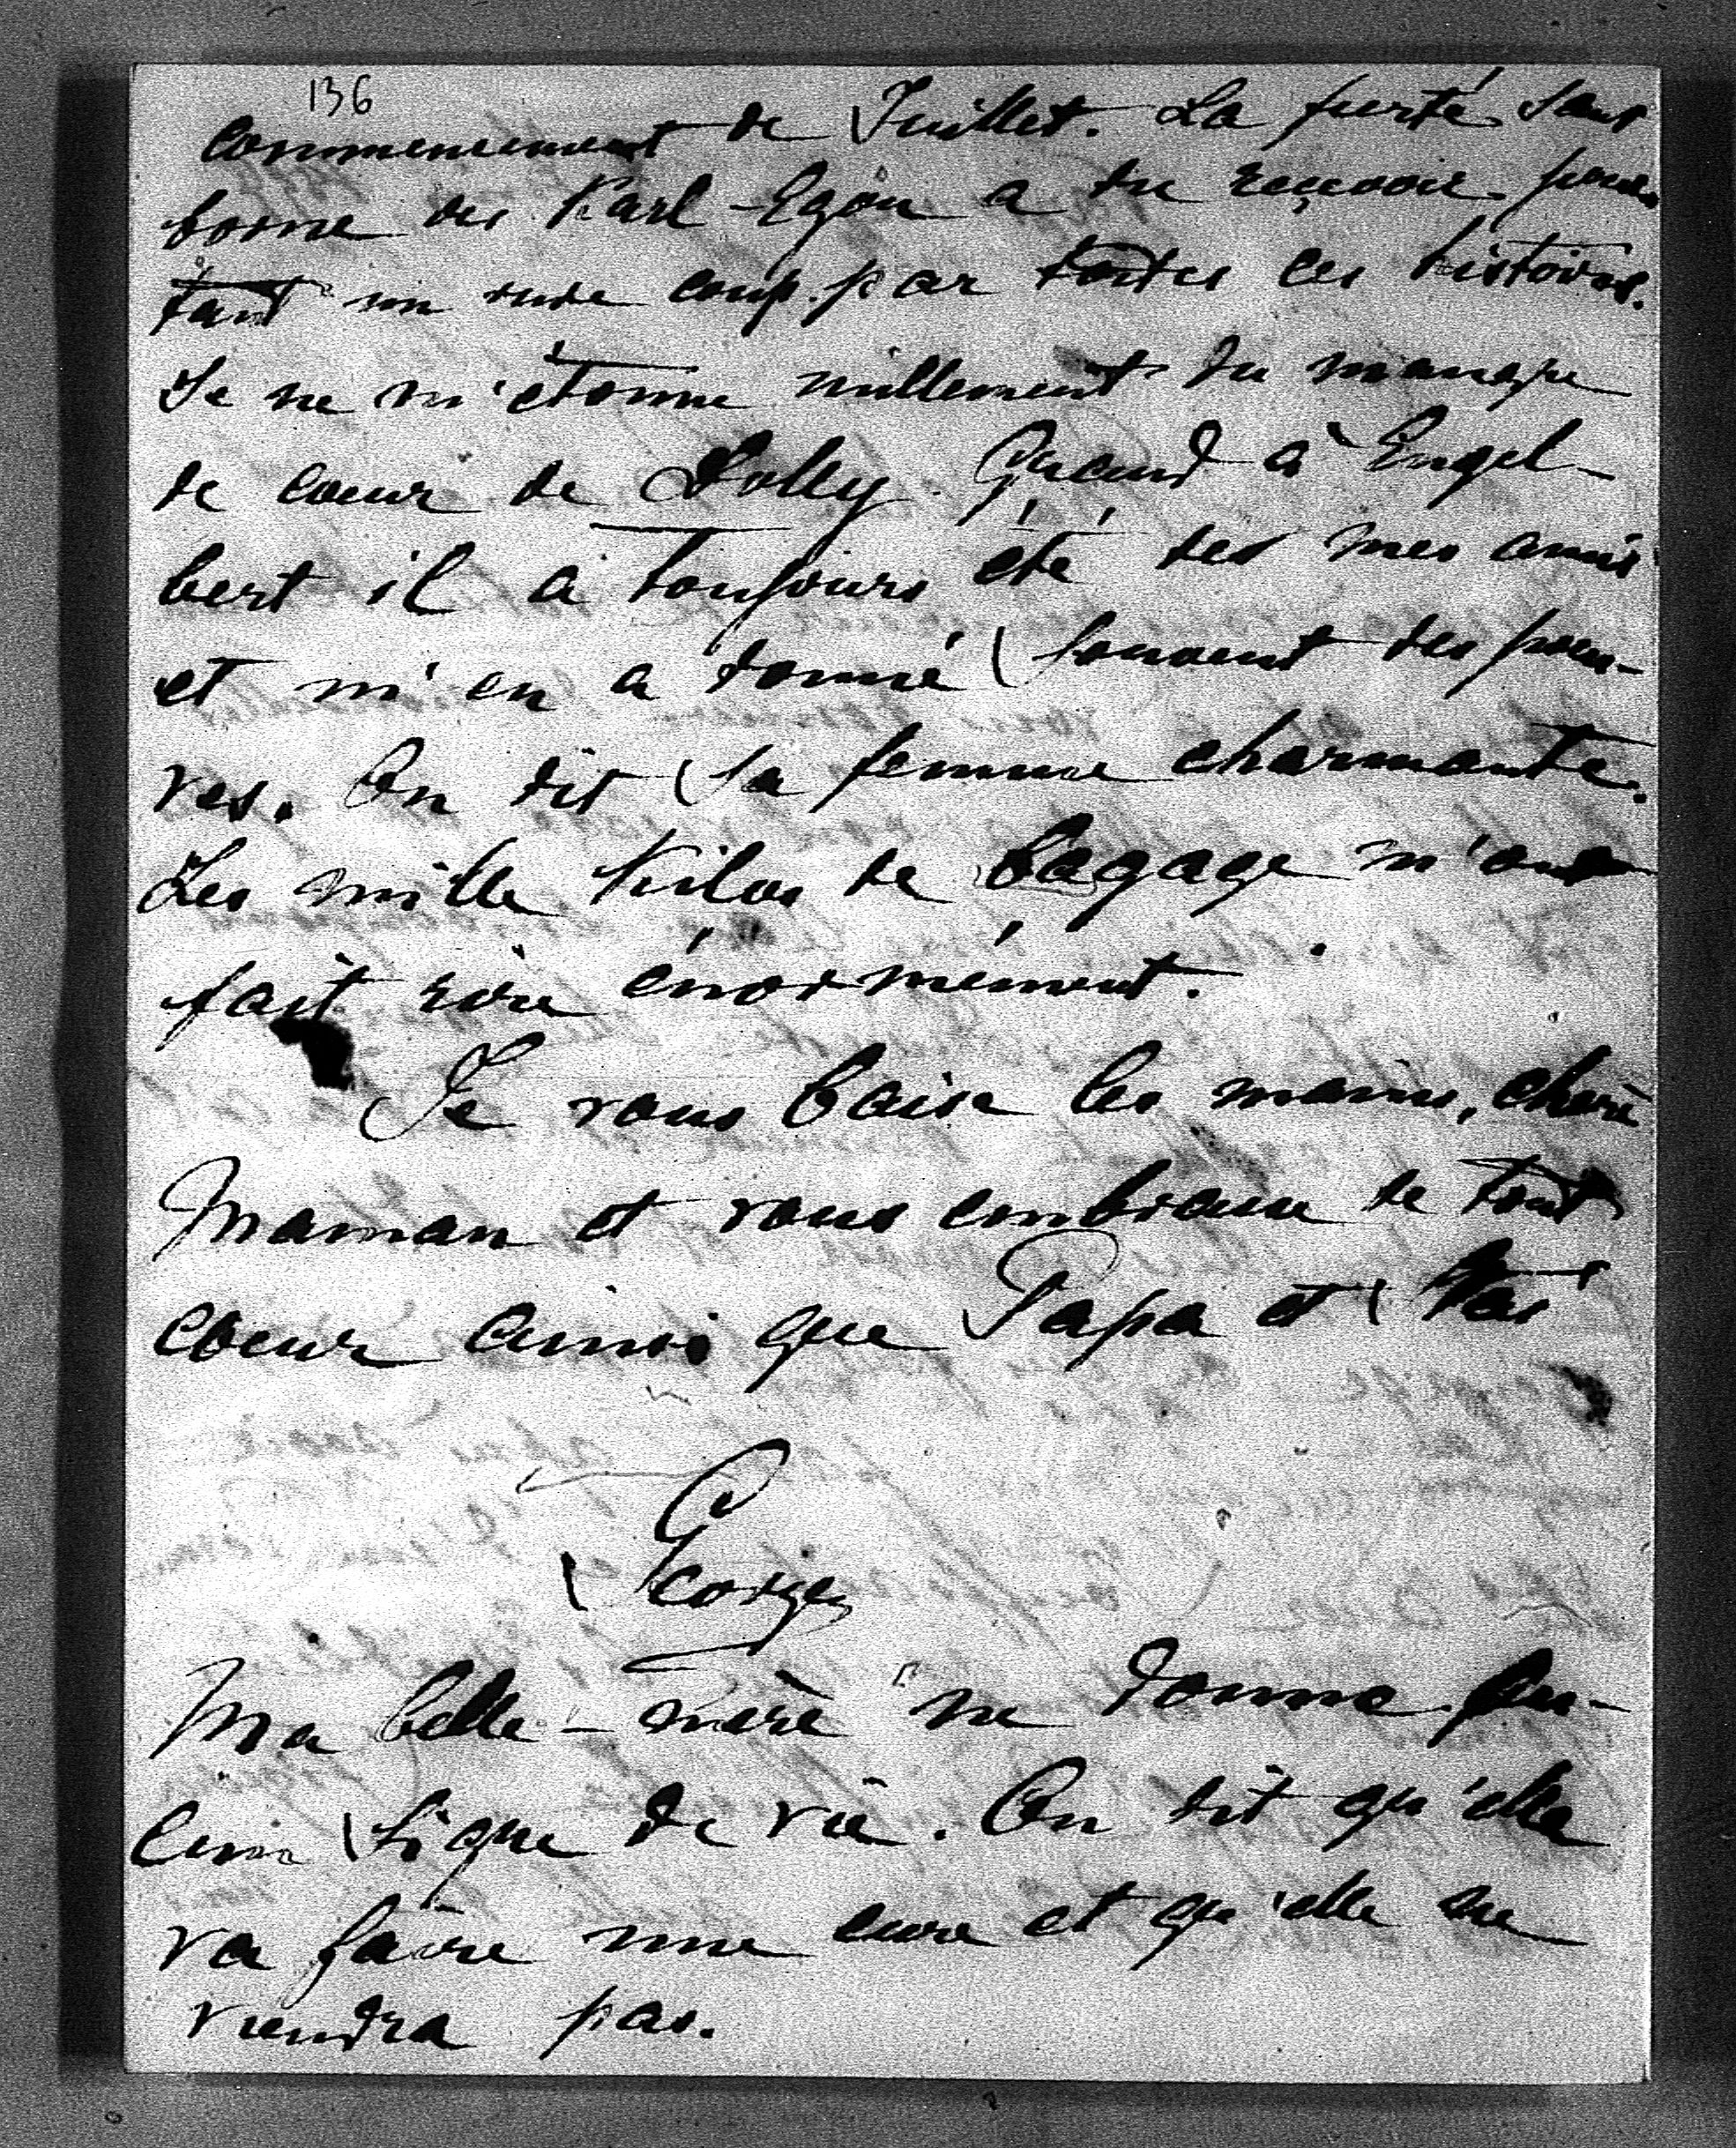 136
commencement de Juillet. La fierté sans
borne des Karl-Egon a du reçevoir pour-
tant un rude coup par toutes ces histoires.
Je ne m'étonne nullement du manque
de coeur de Dolly. Quand à Engel-
bert il a toujours été des mes amis
et m'en a donné souvent des preu-
ves. On dit sa femme charmante.
Les mille kilos de bagage m'ont
fait rire énormément.
Je vous baise les mains, chère
Maman et vous embrasse de tout
coeur ainsi que Papa et
Georges
Ma belle-mère ne donne au-
cun signe de vie. On dit qu'elle
va faire une cure et qu'elle ne
viendra pas.